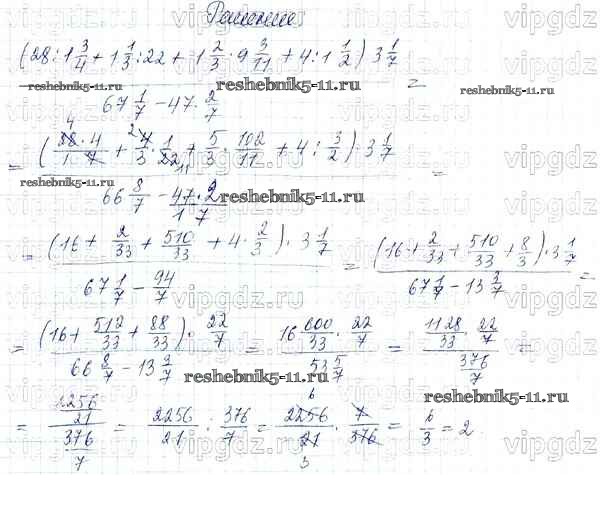 Решение
(28 : 1 3/4 + 1 1/3 : 22 + 1 2/3 · 9 3/11 + 4 : 1 1/2) 3 1/7 / (67 1/7 − 47 · 2/7) =
= (28·4/1·7 + 4/3 · 1/22 + 5/3 · 102/11 + 4 : 3/2) · 3 1/7 / (66 8/7 − 47·2/1·7) =
= (16 + 2/33 + 510/33 + 4 · 2/3) · 3 1/7 / (67 1/7 − 94/7) = (16 + 2/33 + 510/33 + 8/3) · 3 1/7 / (67 1/7 − 13 3/7) =
= (16 + 512/33 + 88/33) · 22/7 / (66 8/7 − 13 3/7) = 16 600/33 · 22/7 / 53 5/7 = 1128/33 · 22/7 / 376/7 =
= 2256/21 / 376/7 = 2256/21 : 376/7 = 2256/21 · 7/376 = 6/3 = 2
vipgdz.ru
reshebnik5-11.ru
reshebnik5-11.ru
reshebnik5-11.ru
reshebnik5-11.ru
reshebnik5-11.ru
reshebnik5-11.ru
reshebnik5-11.ru